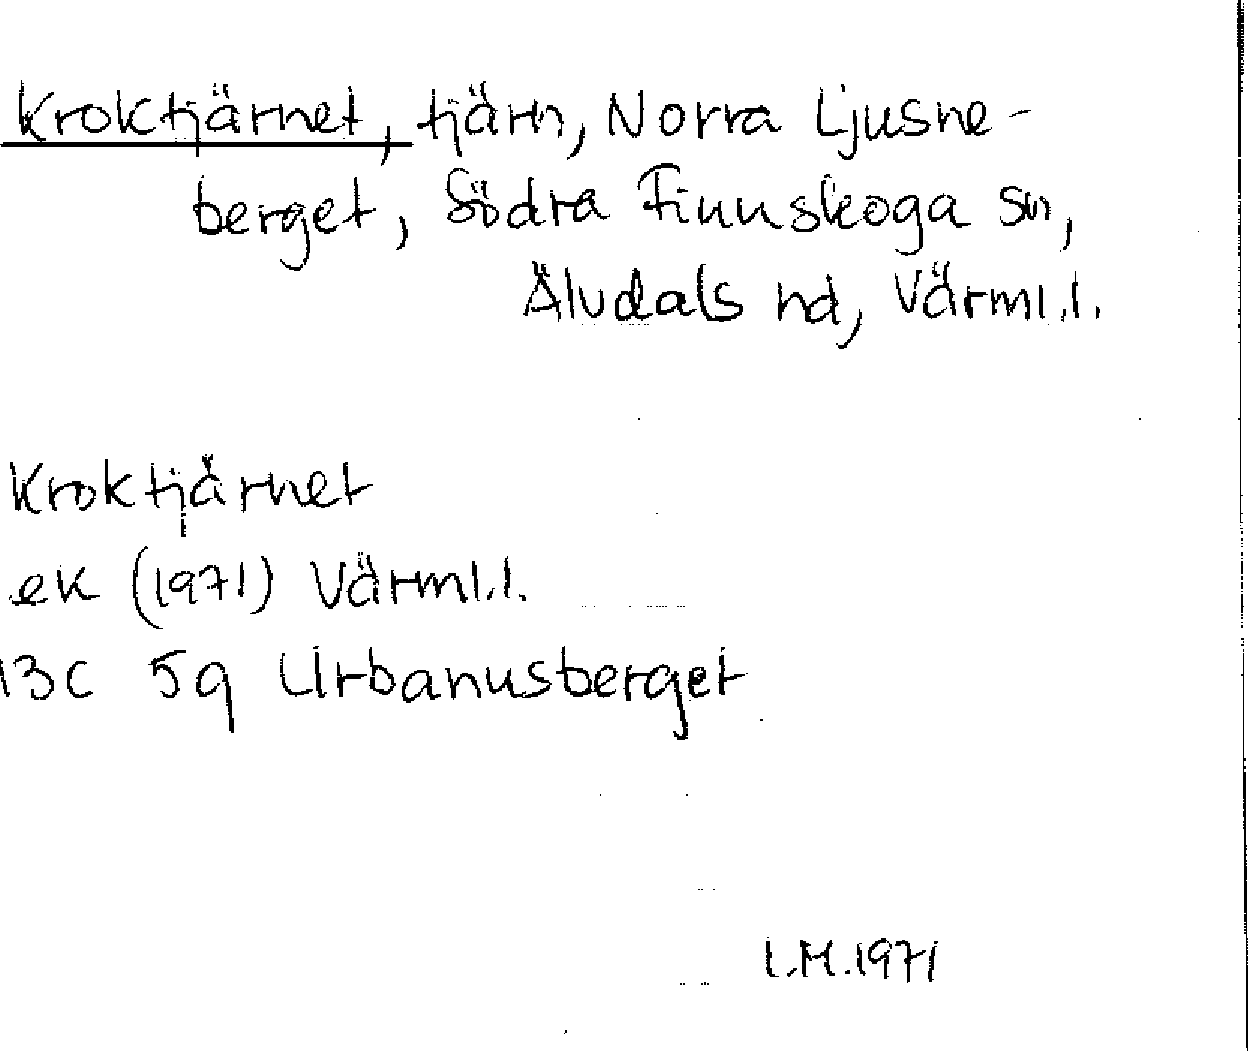 Kroktjärnet, tjärn, Norra Ljusne-
berget, Södra Finnskoga sn,
Älvdals hd, Värml.l.
Kroktjärnet
ek (1971) Värml.l.
13C 5q Urbanusberget
I.M.1971